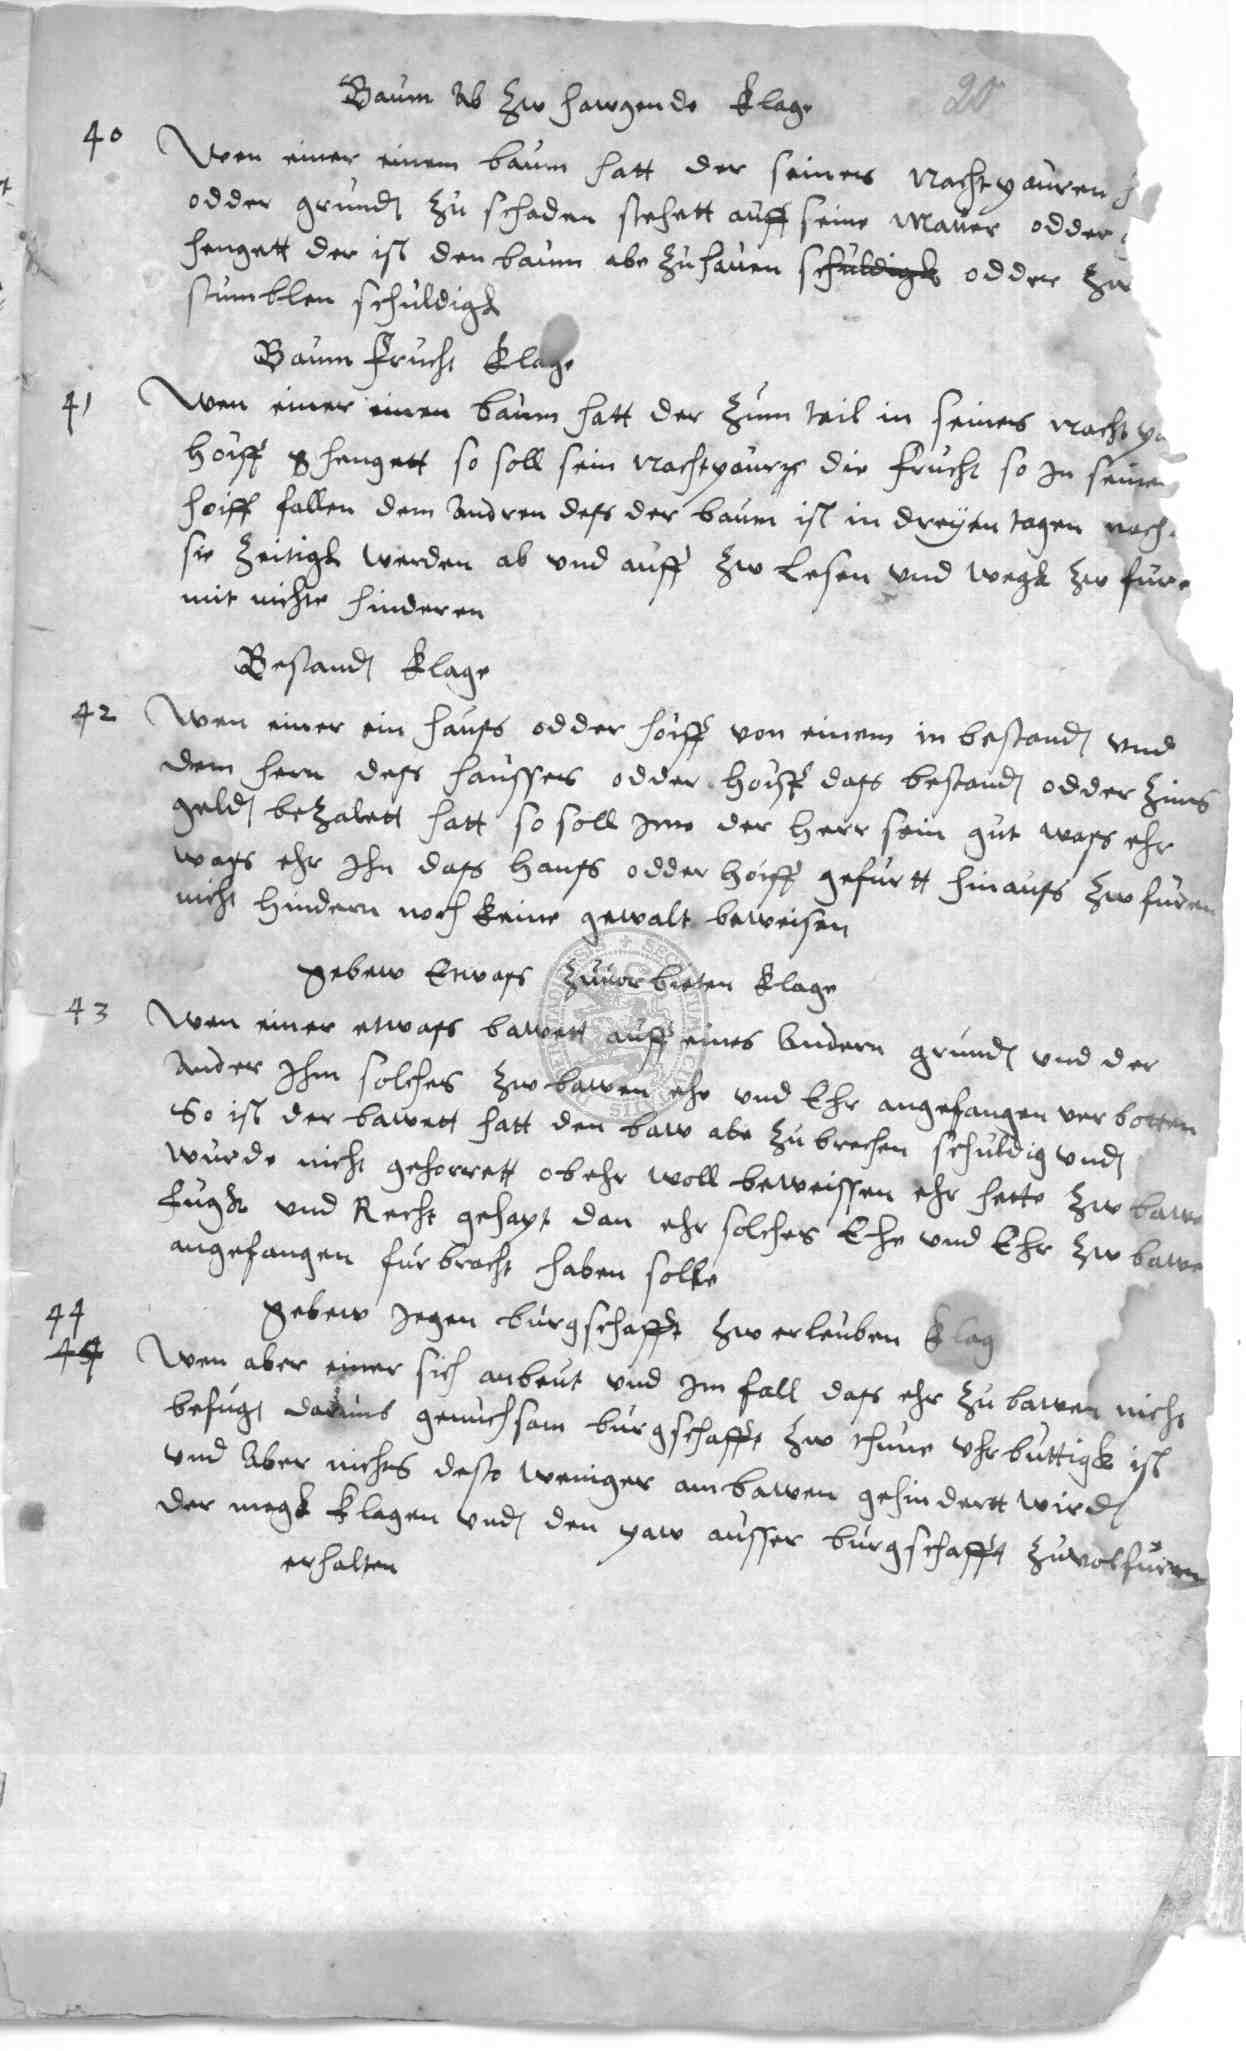 20
Baum Ab zw hawgende klage
40 Wen einer einem baum hatt der seines nachtpauren
odder grundt zu schaden stehett auff seine Mauer odder
hengett der ist den baum abe zuhauen schuldigk odder zw
stumblen schuldigk
Baum Frucht klage
41 Wen einer einen baum hatt der zum teil in seines nachtpa
hoiff hengett so soll sein nachtpaur die Frucht so In seinen
hoiff fallen dem Andren dess der baum ist in dreyen tagen nach
sie zeitigk werden ab und auff zw Lesen und wegk zw fure
mit nichte hinderen
Bestandt klage
42 Wen einer ein hauss odder hoiff von einem in bestandt und
dem hern dess hausses odder hoiff dass bestandt odder zins
geldt bezalett hatt so soll Ime der herr sein gut wass ehr
wass ehr Ihn dass hauss odder hoiff gefurtt hinauss zw furen
nicht hindern noch keine gewalt beweisen
gebew Etwass zuvorbieten klage
43 Wen einer etwass bawett auff eines Andern grundt und der
Ander Ihm solches zw bawen ehe und Ehr angefangen verbotten
So ist der bawett hatt den baw abe zu brechen schuldig undt
wurde nicht gehorrett ob ehr woll beweissen ehr hette zw bawe
fugk und Recht gehapt dan ehr solches Ehe und Ehr zw bawe
angefangen furbracht haben solte
44 gebew Jegen burgschafft zw erleuben klag
44 Wen aber einer sich anbeut und Im fall dass ehr zu bawen nicht
befugt genuchsam burgschafft zw thune uhrbuttigk ist
und Aber nichts desto weniger am bawen gehindertt wirdt
der megk klagen undt den paw ausser burgschafft zuvolfuren
erhalten